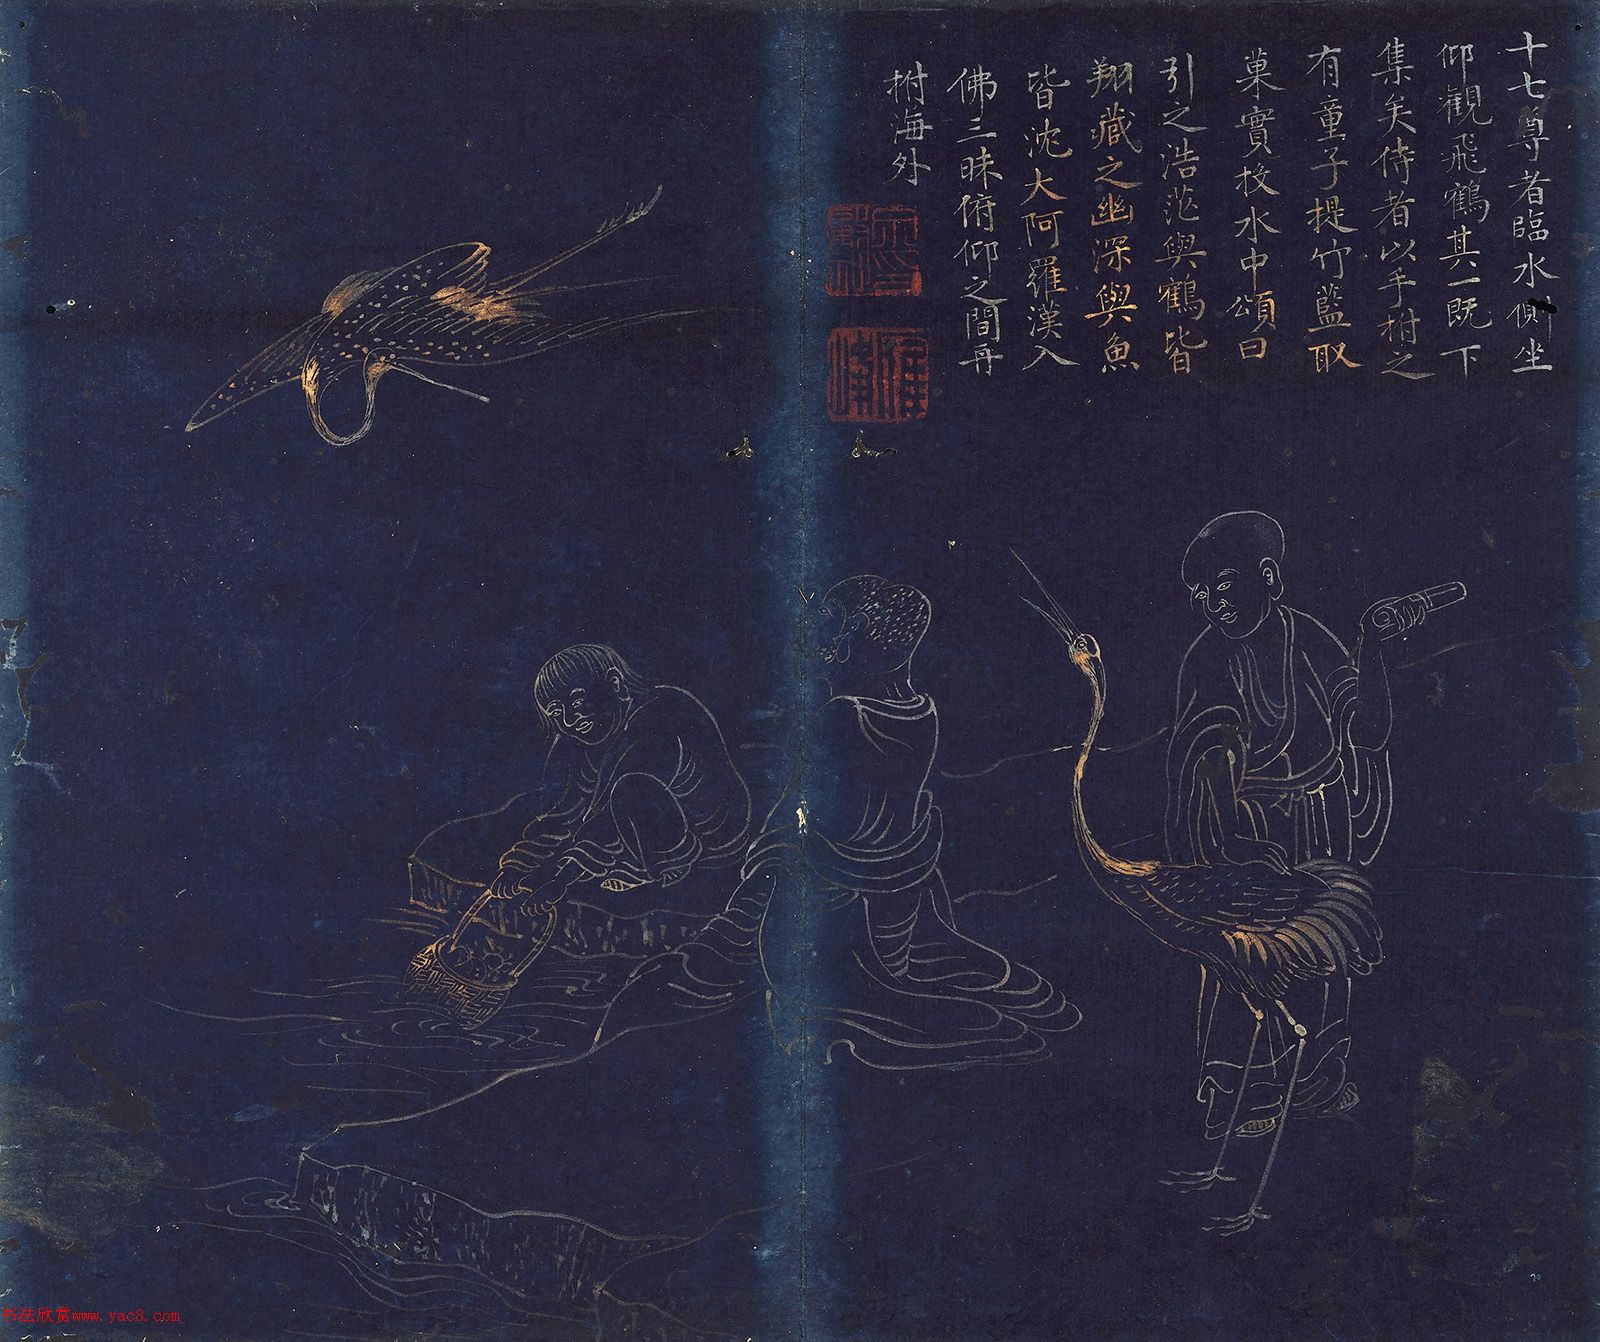 十七尊者臨水側坐
仰觀飛鶴其一既下
集矣侍者以手拊之
有童子提竹藍取
菓實投水中頌曰
引之浩茫與鶴皆
翔藏之幽深與魚
皆沈大阿羅漢入
佛三昧俯仰之間再
拊海外
书法欣赏www.yac8.com